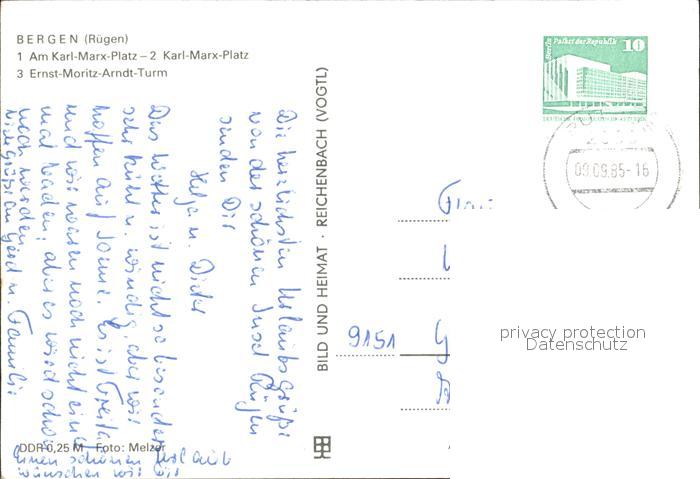 BERGEN (Rügen)
1 Am Karl-Marx-Platz – 2 Karl-Marx-Platz
3 Ernst-Moritz-Arndt-Turm
Berlin Palast der Republik 10
09.09.85-16
BILD UND HEIMAT · REICHENBACH (VOGTL)
Die herzlichsten Urlaubsgrüße
von der schönen Insel Rügen
senden Dir
Helga u. Dieter
Das Wetter ist nicht so besonders
sehr kühl u. windig, aber wir
hoffen auf Sonne. Es ist Freitag
und wir waren noch nicht einmal
baden, aber es wird schon
noch werden.
Viele Grüße an Gerd u. Familie
Einen schönen Urlaub
wünschen wir Dir
Frau
9151
DDR 0,25 M Foto: Melzer
privacy protection
Datenschutz